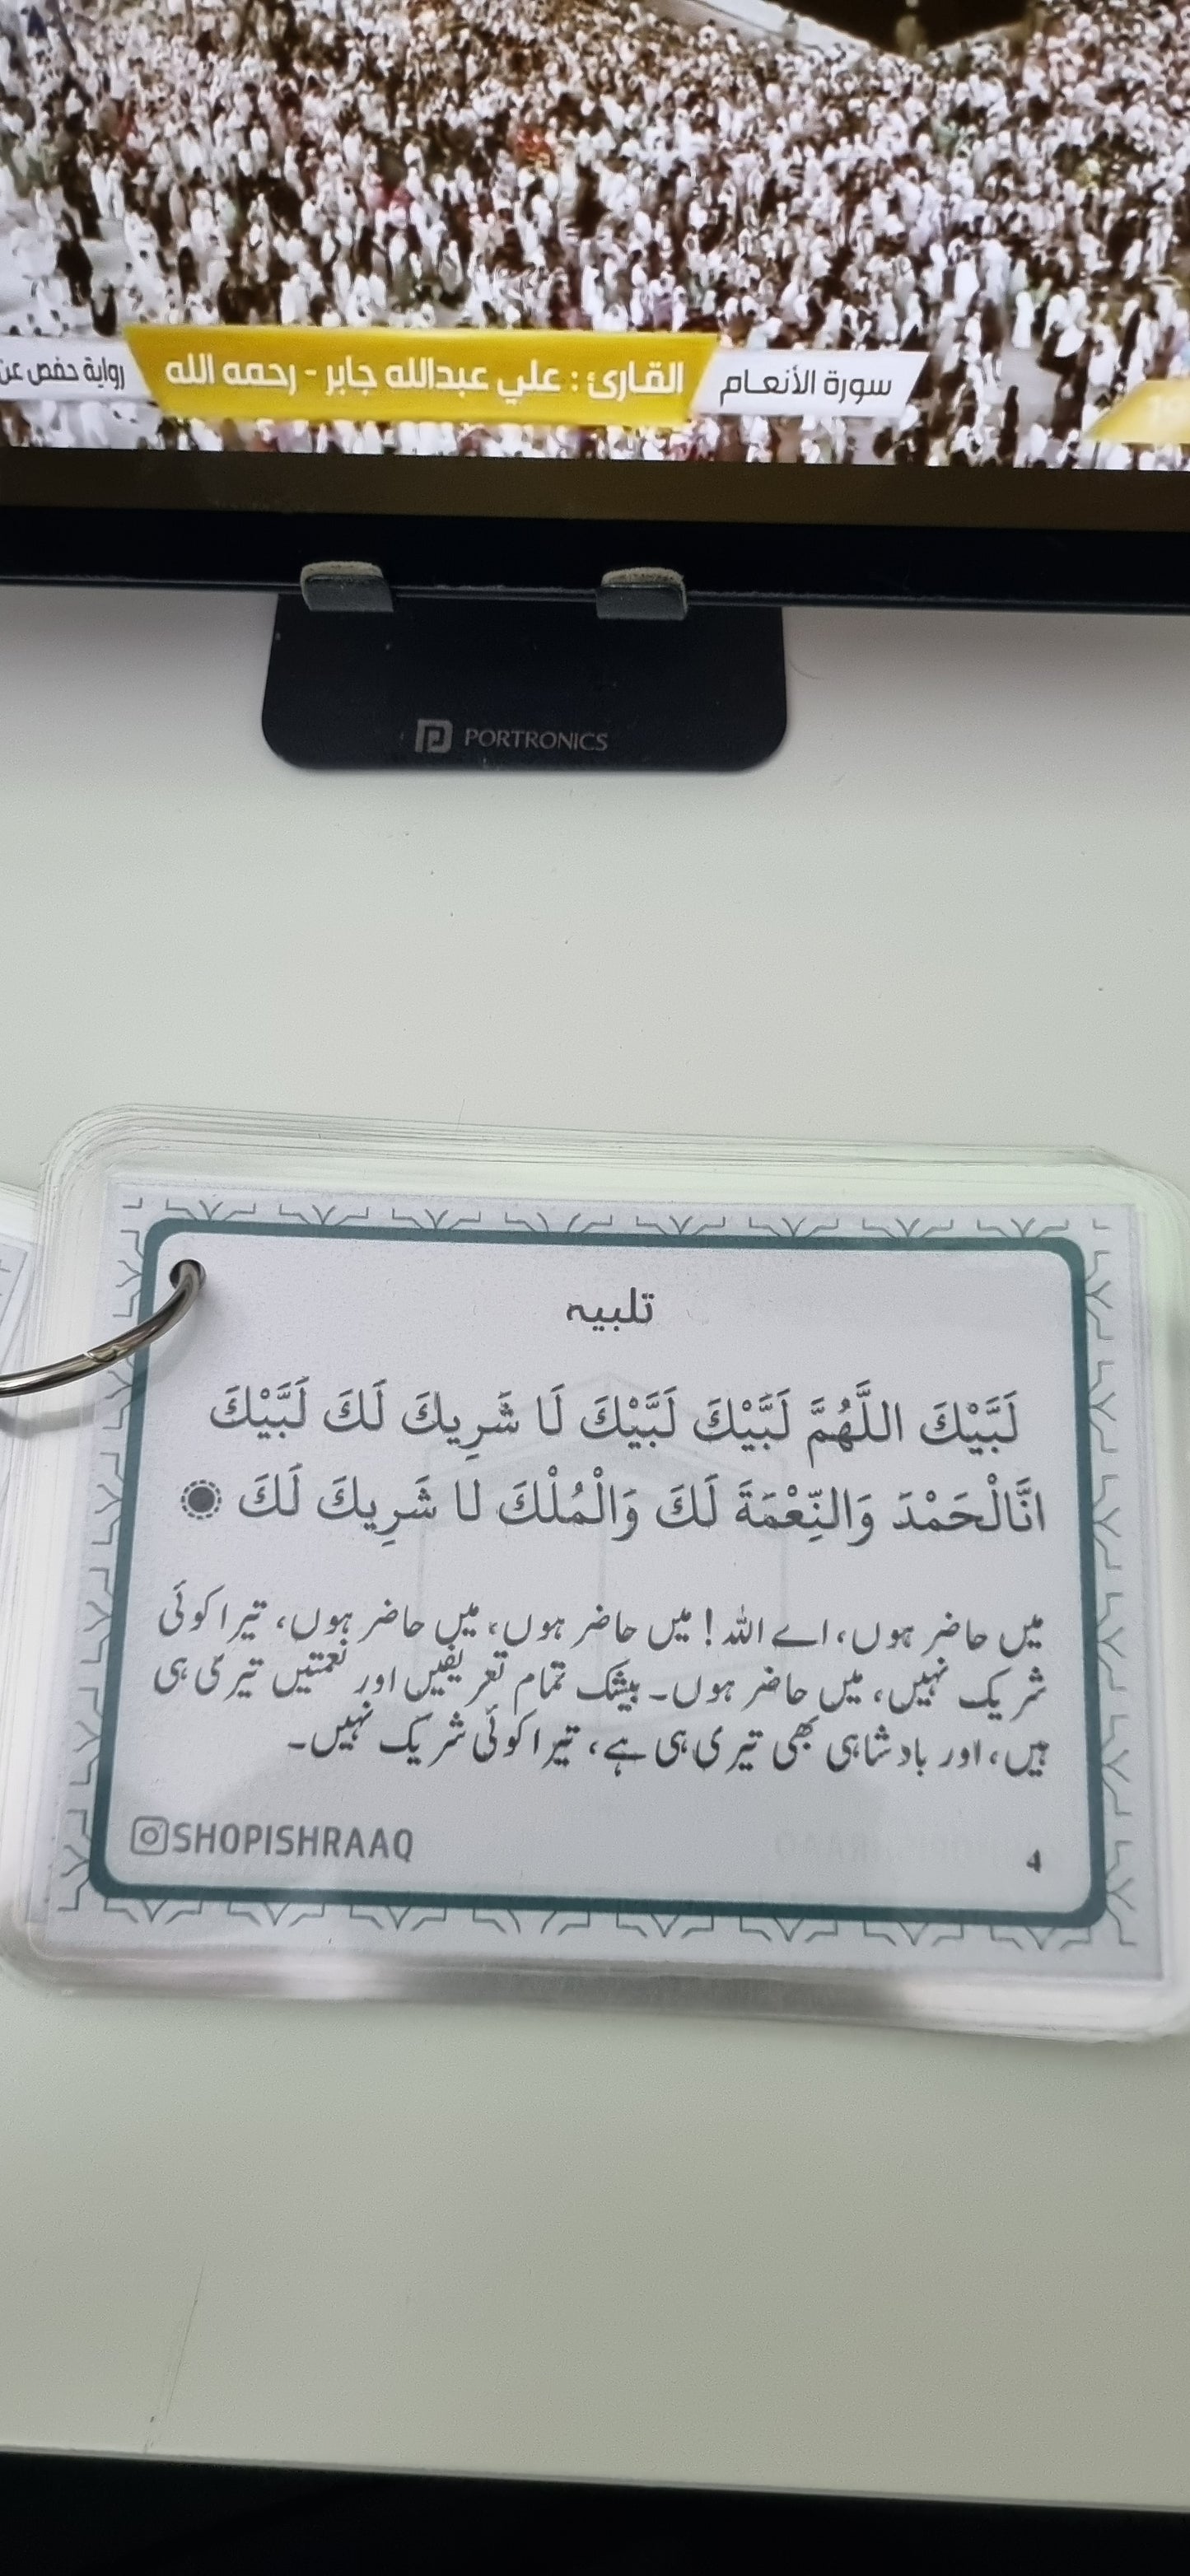 سورة الأنعام
القارئ : علي عبدالله جابر - رحمه الله
رواية حفص عن
PORTRONICS
تلبیہ
لَبَّيْكَ اللَّهُمَّ لَبَّيْكَ لَبَّيْكَ لَا شَرِيكَ لَكَ لَبَّيْكَ
انَّالْحَمْدَ وَالنِّعْمَةَ لَكَ وَالْمُلْكَ لا شَرِيكَ لَكَ
میں حاضر ہوں، اے اللہ! میں حاضر ہوں، میں حاضر ہوں، تیرا کوئی
شریک نہیں، میں حاضر ہوں۔ بیشک تمام تعریفیں اور نعمتیں تیری ہی
ہیں، اور بادشاہی بھی تیری ہی ہے، تیرا کوئی شریک نہیں۔
SHOPISHRAAQ
4